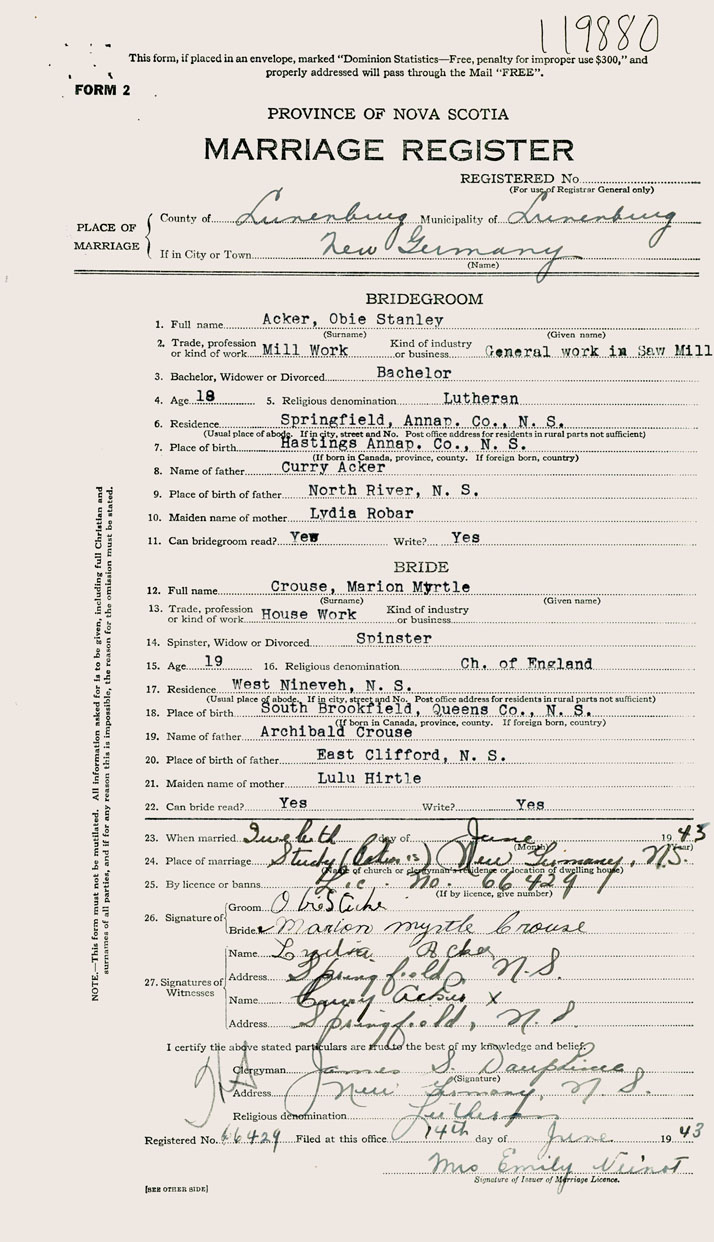 119880
This form, if placed in an envelope, marked "Dominion Statistics—Free, penalty for improper use $300," and
properly addressed will pass through the Mail "FREE".
FORM 2
PROVINCE OF NOVA SCOTIA
MARRIAGE REGISTER
REGISTERED No.
(For use of Registrar General only)
PLACE OF MARRIAGE
County of Lunenburg Municipality of Lunenburg
If in City or Town New Germany
(Name)
BRIDEGROOM
1. Full name Acker, Obie Stanley
(Surname) (Given name)
2. Trade, profession or kind of work Mill Work Kind of industry or business General work in Saw Mill
3. Bachelor, Widower or Divorced Bachelor
4. Age 18 5. Religious denomination Lutheran
6. Residence Springfield, Annap. Co., N. S.
(Usual place of abode. If in city, street and No. Post office address for residents in rural parts not sufficient)
7. Place of birth Hastings Annap. Co., N. S.
(If born in Canada, province, county. If foreign born, country)
8. Name of father Curry Acker
9. Place of birth of father North River, N. S.
10. Maiden name of mother Lydia Robar
11. Can bridegroom read? Yes Write? Yes
BRIDE
12. Full name Crouse, Marion Myrtle
(Surname) (Given name)
13. Trade, profession or kind of work House Work Kind of industry or business
14. Spinster, Widow or Divorced Spinster
15. Age 19 16. Religious denomination Ch. of England
17. Residence West Nineveh, N. S.
(Usual place of abode. If in city, street and No. Post office address for residents in rural parts not sufficient)
18. Place of birth South Brookfield, Queens Co., N. S.
(If born in Canada, province, county. If foreign born, country)
19. Name of father Archibald Crouse
20. Place of birth of father East Clifford, N. S.
21. Maiden name of mother Lulu Hirtle
22. Can bride read? Yes Write? Yes
23. When married Twelfth day of June 1943
(Month) (Year)
24. Place of marriage Study New Germany, N.S.
(Name of church or clergyman's residence or location of dwelling house)
25. By licence or banns Lic. No. 66429
(If by licence, give number)
26. Signature of
Groom Obie S Acker
Bride Marion myrtle Crouse
27. Signatures of Witnesses
Name Lydia Acker
Address Springfield, N.S.
Name Curry Acker X
Address Springfield, N. S.
I certify the above stated particulars are true to the best of my knowledge and belief.
Clergyman James S. Dauphinee
(Signature)
Address New Germany, N. S.
Religious denomination Lutheran
Registered No. 66429 Filed at this office 14th day of June 1943
Mrs Emily Veinot
Signature of Issuer of Marriage Licence.
[SEE OTHER SIDE]
NOTE.—This form must not be mutilated. All information asked for is to be given, including full Christian and
surnames of all parties, and if for any reason this is impossible, the reason for the omission must be stated.